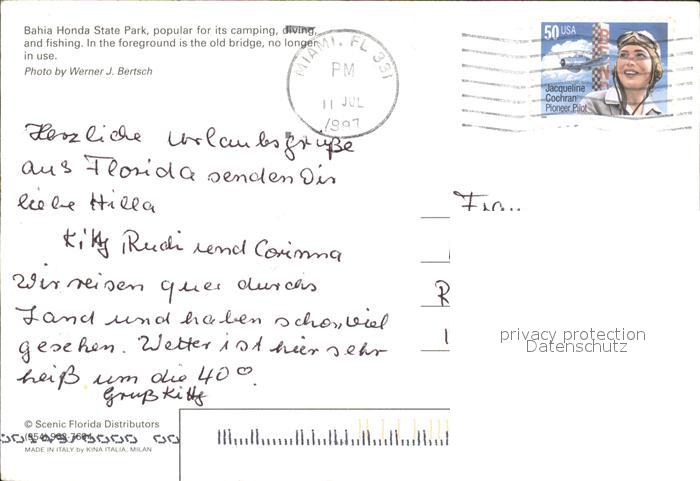 Bahia Honda State Park, popular for its camping, diving,
and fishing. In the foreground is the old bridge, no longer
in use.
Photo by Werner J. Bertsch
MIAMI, FL 331
PM
11 JUL
1997
50 USA
Jacqueline
Cochran
Pioneer Pilot
Herzliche Urlaubsgrüße
aus Florida senden Dir
liebe Hilla
Kitty Rudi und Corinna
Wir reisen quer durchs
Land und haben schon viel
gesehen. Wetter ist hier sehr
heiß um die 40°.
Gruß Kitty
Frau
R
privacy protection
Datenschutz
© Scenic Florida Distributors
(954)
MADE IN ITALY by KINA ITALIA, MILAN